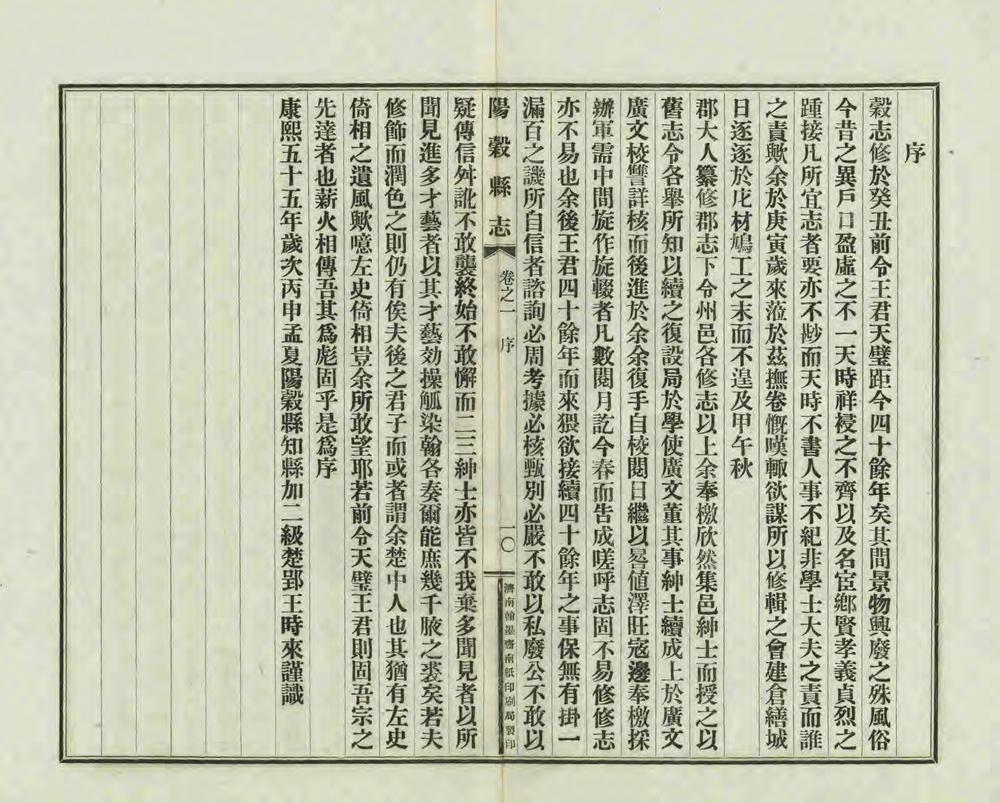 序
穀志修於癸丑前令王君天璧距今四十餘年矣其間景物興廢之殊風俗
今昔之異戶口盈虛之不一天時祥祲之不齊以及名宦鄉賢孝義貞烈之
踵接凡所宜志者要亦不尠而天時不書人事不紀非學士大夫之責而誰
之責歟余於庚寅歲來蒞於茲撫卷慨嘆輙欲謀所以修輯之會建倉繕城
日逐逐於庀材鳩工之末而不遑及甲午秋
郡大人纂修郡志下令州邑各修志以上余奉檄欣然集邑紳士而授之以
舊志令各舉所知以續之復設局於學使廣文董其事紳士續成上於廣文
廣文校讐詳核而後進於余余復手自校閱日繼以晷値澤旺寇邊奉檄採
辦軍需中間旋作旋輟者凡數閱月訖今春而告成嗟呼志固不易修修志
亦不易也余後王君四十餘年而來猥欲接續四十餘年之事保無有掛一
漏百之譏所自信者諮詢必周考據必核甄別必嚴不敢以私廢公不敢以
陽穀縣志
卷之一 序
一〇
濟南翰墨齋南紙印刷局製印
疑傳信舛訛不敢襲終始不敢懈而二三紳士亦皆不我棄多聞見者以所
聞見進多才藝者以其才藝効操觚染翰各奏爾能庶幾千腋之裘矣若夫
修飾而潤色之則仍有俟夫後之君子而或者謂余楚中人也其猶有左史
倚相之遺風歟噫左史倚相豈余所敢望耶若前令天璧王君則固吾宗之
先達者也薪火相傳吾其爲彪固乎是爲序
康熙五十五年歲次丙申孟夏陽穀縣知縣加二級楚郢王時來謹識